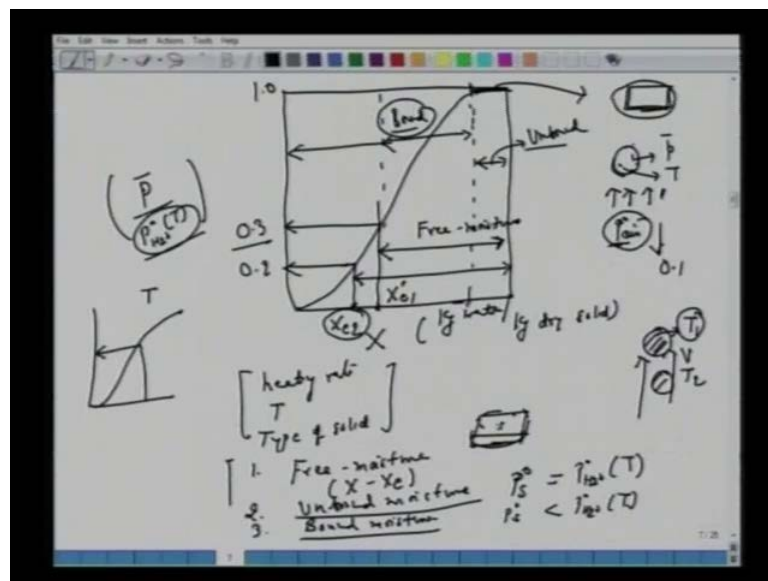 File Edit View Insert Actions Tools Help
1.0
Bound
Unbound
p̄
T
p̄
p°H₂O(T)
0.3
Free-moisture
0.2
0.1
T
Xe2
X*e1
X (kg water/kg dry solid)
T1
V
T2
T
Type of solid
1. Free-moisture
(X-Xe)
2. Unbound moisture
3. Bound moisture
p°s = p°H₂O(T)
p°s < p°H₂O(T)
7/25